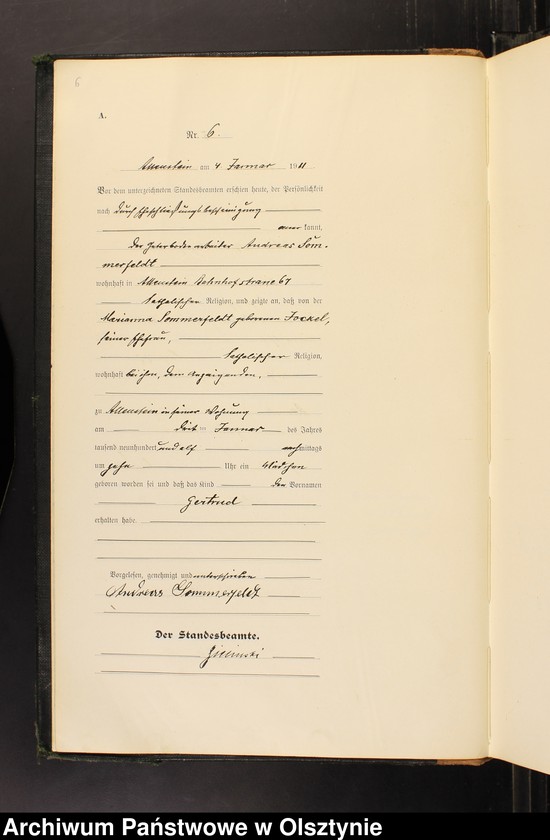 6
A.
Nr. 6.
Allenstein am 4 Januar 1911
Vor dem unterzeichneten Standesbeamten erschien heute, der Persönlichkeit
nach durch Eheschließungsbescheinigung
anerkannt,
der Andreas Som-
merfeldt
wohnhaft in Allenstein Bahnhofstrasse 67
katholischer Religion, und zeigte an, daß von der
Marianna Sommerfeldt geborenen Jockel,
seiner Ehefrau,
katholischer Religion,
wohnhaft bei ihm, dem Anzeigenden,
zu Allenstein in seiner Wohnung
am Januar des Jahres
tausend neunhundert und elf nachmittags
um zehn Uhr ein Mädchen
geboren worden sei und daß das Kind den Vornamen
Gertrud
erhalten habe.
Vorgelesen, genehmigt und unterschrieben
Andreas Sommerfeldt
Der Standesbeamte.
Archiwum Państwowe w Olsztynie